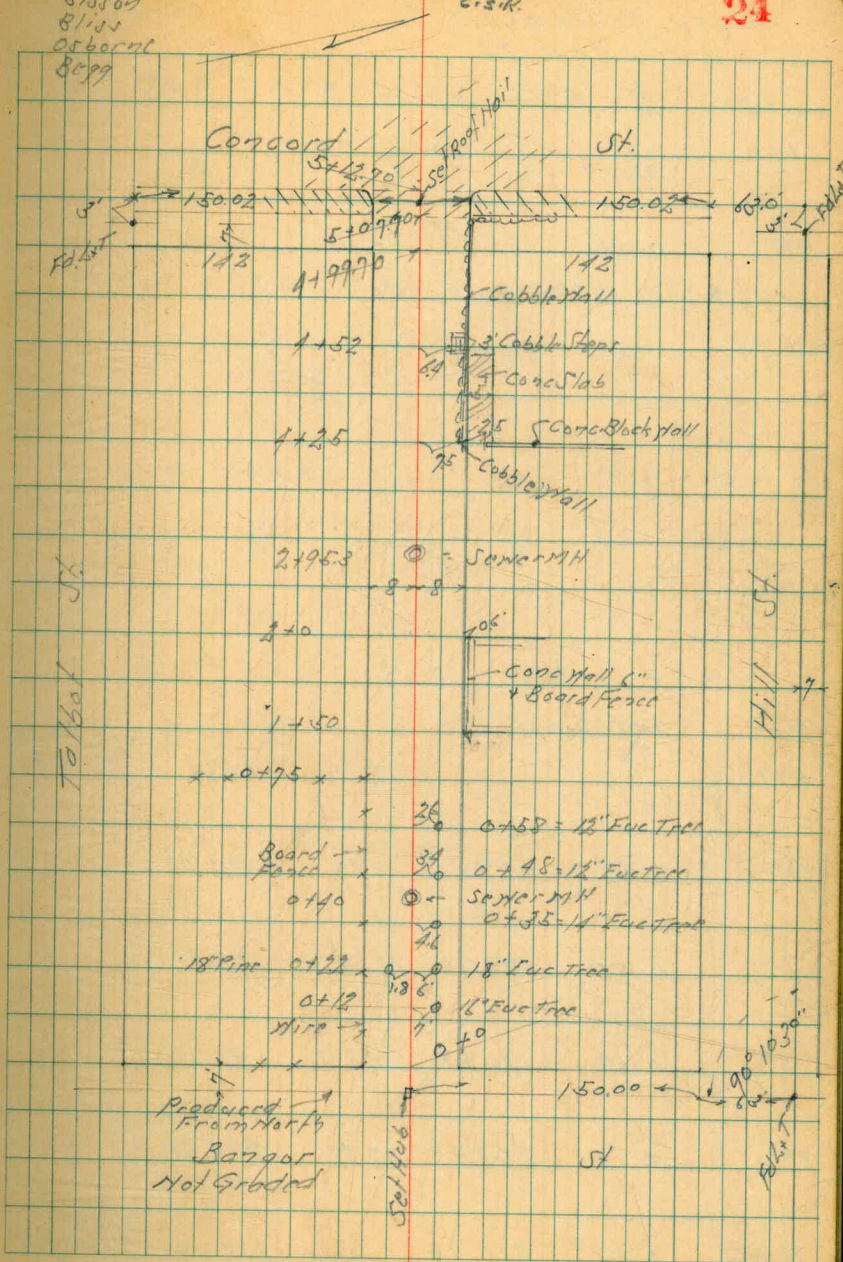 Sisson
Bliss
Osborne
Begg
C.S.K.
24
Concord St.
5+12.70
Set Roof Nail
3'
150.02
150.02
63.0'
3'
Fd. L x T
Fd L x T
7'
5+07.70
142
142
4+99.70
Cobble Wall
4+52
3' Cobble Steps
6.4
Conc Slab
4+25
2.5
Conc Block Wall
7.5
Cobble Wall
2+95.3
Sewer MH
8 8
Talbot St.
Hill St.
2+0
0.6'
Conc Wall 6"
+ Board Fence
7
1+50
0+75
2.6
0+58 = 12" Euc Tree
Board
Fence
3.4
0+48 = 12" Euc Tree
0+40
Sewer MH
0+35 = 14" Euc Tree
4.6
18" Pine 0+22
18" Euc Tree
1.8 6'
0+12
16" Euc Tree
Wire
7'
0+0
90° 10' 30"
7'
150.00
63'
Produced
From North
Fd L x T
Bangor St
Not Graded
Set Hub